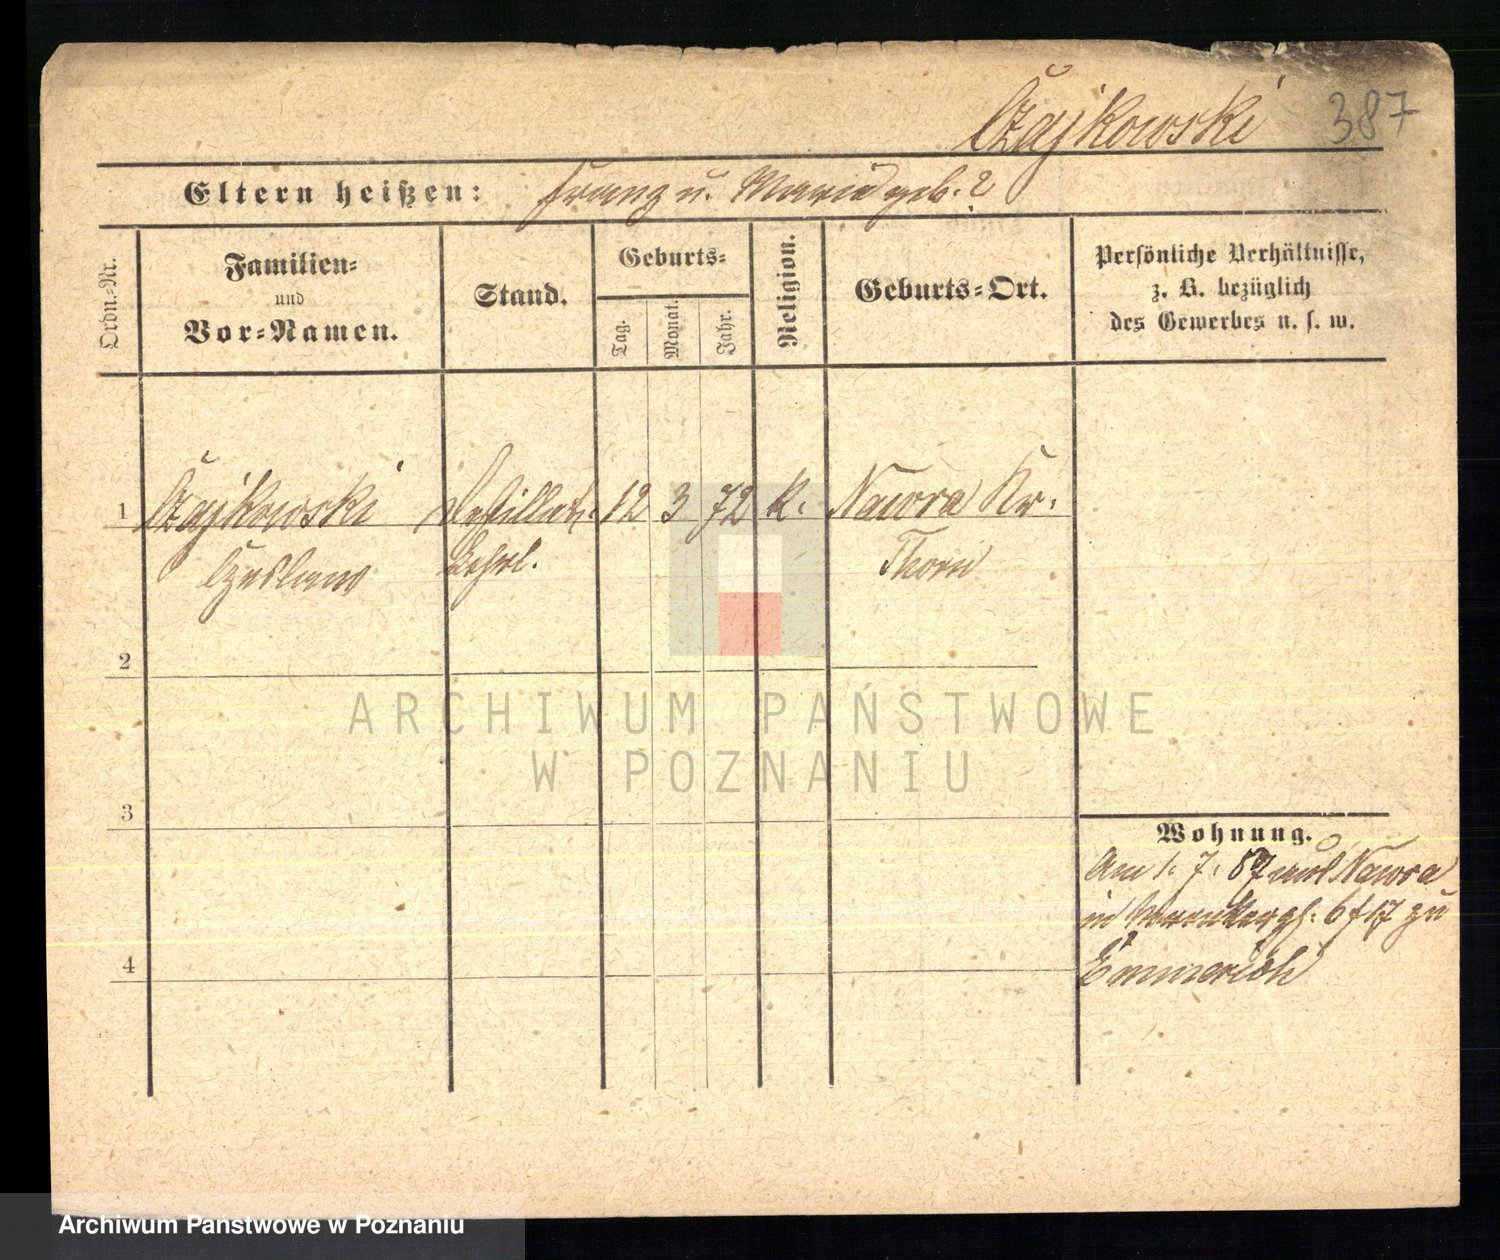 Czajkowski 387
Eltern heißen: Franz u. Maria geb. ?
Ordn.-Nr.
Familien-
und
Vor-Namen.
Stand.
Geburts-
Tag.
Monat.
Jahr.
Religion.
Geburts-Ort.
Persönliche Verhältnisse,
z. B. bezüglich
des Gewerbes u. s. w.
1 Czajkowski Destillat. 12 3 72 k. Nawra Kr.
Czeslaus Lehrl. Thorn
2
3
4
Wohnung.
Am 1. 7. 87 aus Nawra
in 6/7 zu
Emmerich
ARCHIWUM PAŃSTWOWE
W POZNANIU
Archiwum Państwowe w Poznaniu